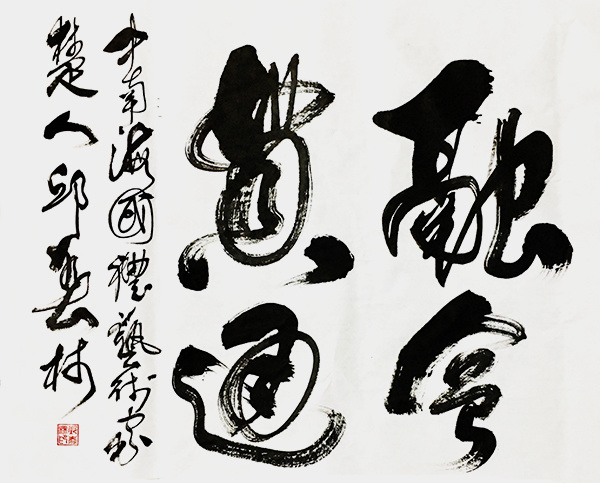 融會
貫通
中南海國禮藝術家
楚人邱春林